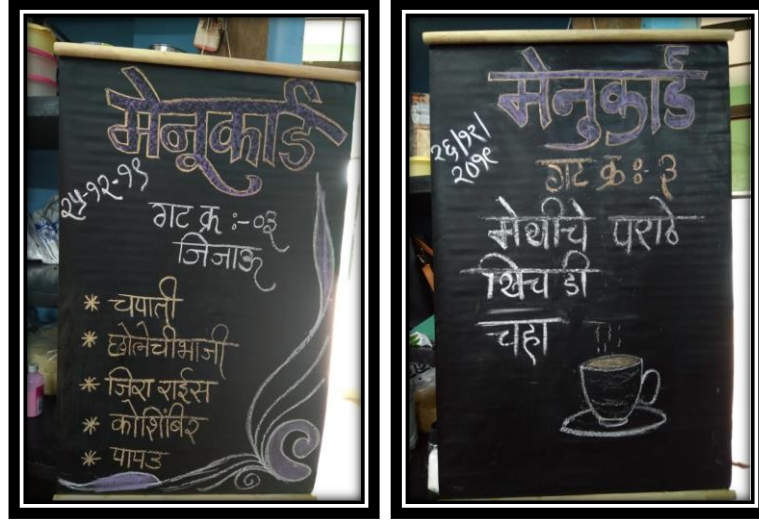 मेनूकार्ड
२५-१२-१९
गट क्र :- ०३
जिजाऊ
* चपाती
* छोलेचीभाजी
* जिरा राईस
* कोशिंबिर
* पापड
मेनुकार्ड
२६/१२/
२०१९
गट क्र :- ३
मेथीचे पराठे
खिचडी
चहा